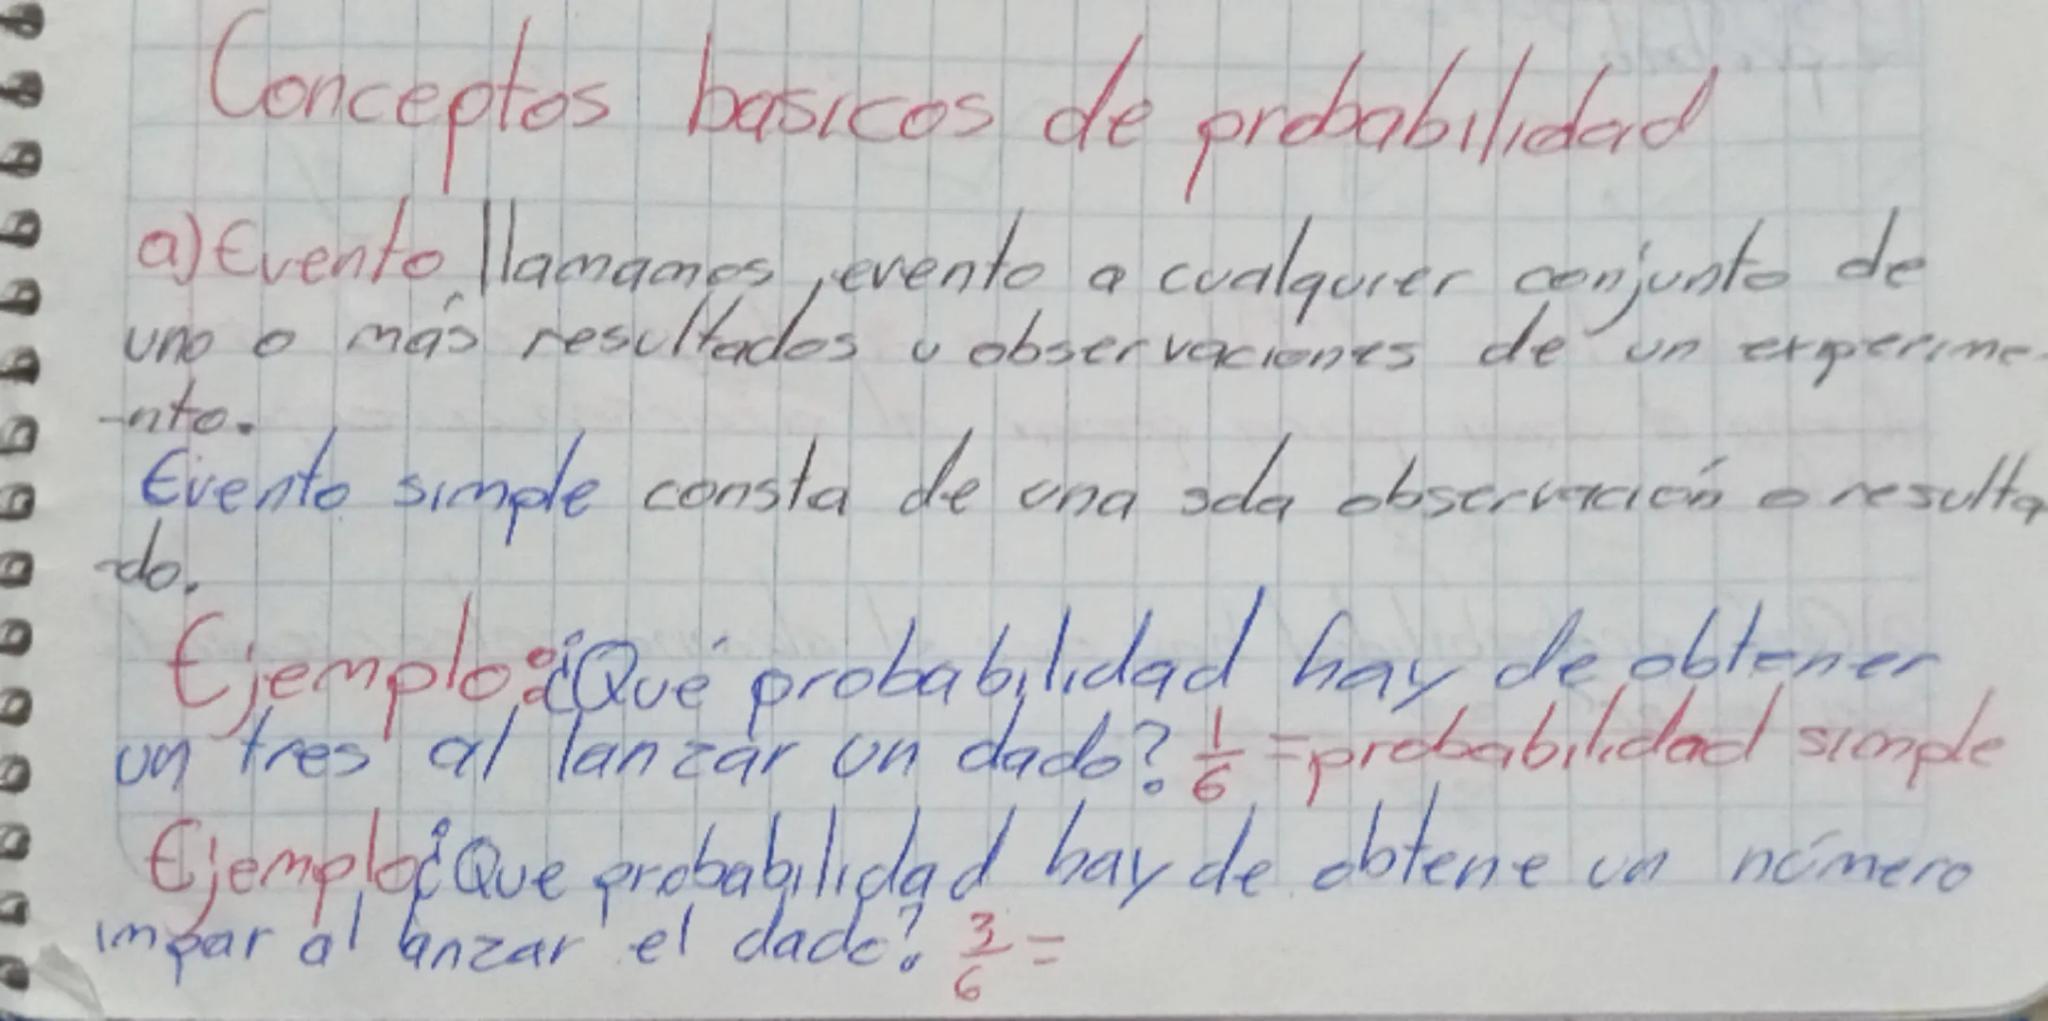 Conceptos basicos de probabilidad
a) Evento llamamos evento a cualquier conjunto de
uno o más resultados u observaciones de un experime-
-nto.
Evento simple consta de una sola observación o resulta
-do.
Ejemplo: ¿Qué probabilidad hay de obtener
un tres al lanzar un dado? 1/6 = probabilidad simple
Ejemplo: ¿Que probabilidad hay de obtene un número
impar al lanzar el dado? 3/6 =